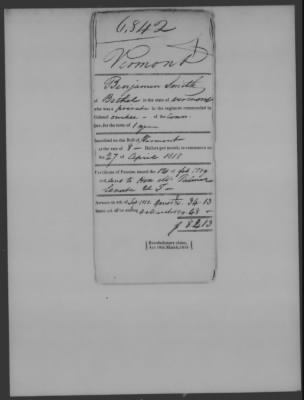 6,842
Vermont
Benjamin Smith
of Bethel in the state of Vermont
who was a private in the regiment commanded by
Colonel of the Conn.
line, for the term of 1 year
Inscribed on the Roll of Vermont
at the rate of 8 Dollars per month, to commence on
the 27 of April 1818
Certificate of Pension issued the of
to Hon
Senate U. S.
34.13
48
$ 82.13
Revolutionary claim,
Act 18th March, 1818